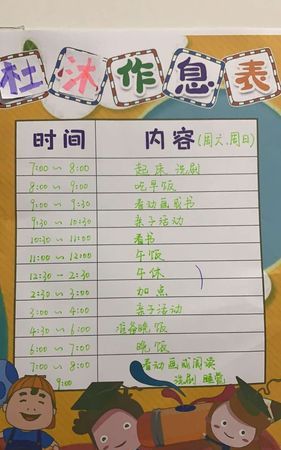 杜沐作息表
时间 内容(周六、周日)
7:00 ~ 8:00 起床 洗刷
8:00 ~ 9:00 吃早饭
9:00 ~ 9:30 看动画或书
9:30 ~ 10:30 亲子活动
10:30 ~ 11:00 看书
11:00 ~ 12:00 午饭
12:30 ~ 2:30 午休
2:30 ~ 3:00 加点
3:00 ~ 4:00 亲子活动
4:30 ~ 6:00 准备晚饭
6:00 ~ 7:00 晚饭
7:00 ~ 8:00 看动画或阅读
9:00 洗刷 睡觉